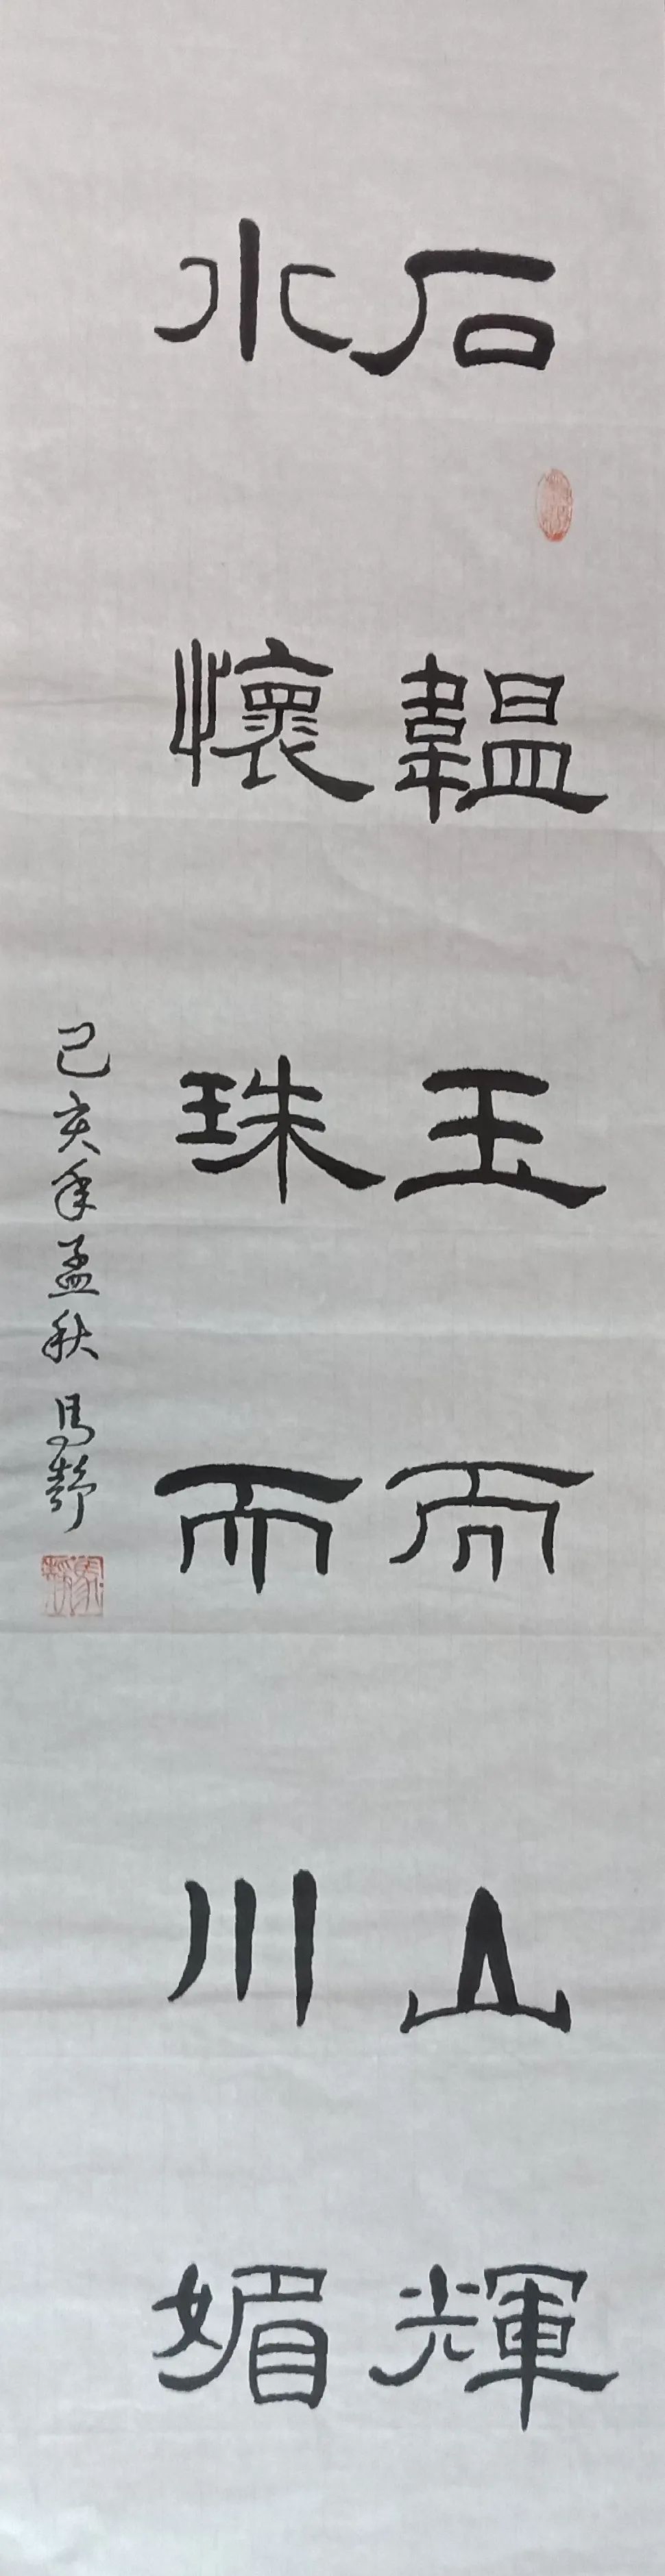 石韞玉而山輝
水懷珠而川媚
己亥年孟秋 馬靜